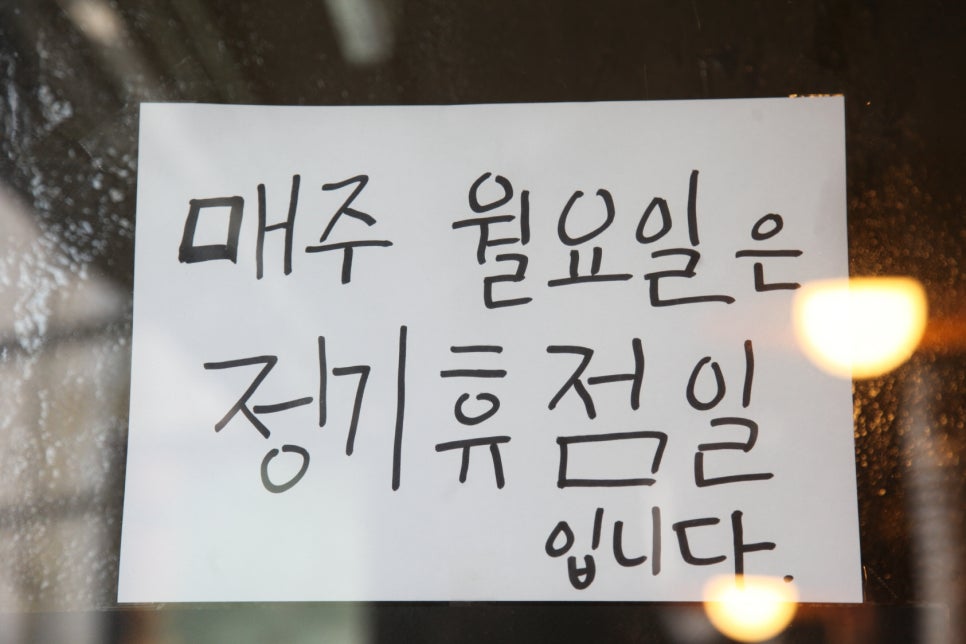 매주 월요일은
정기휴점일
입니다.